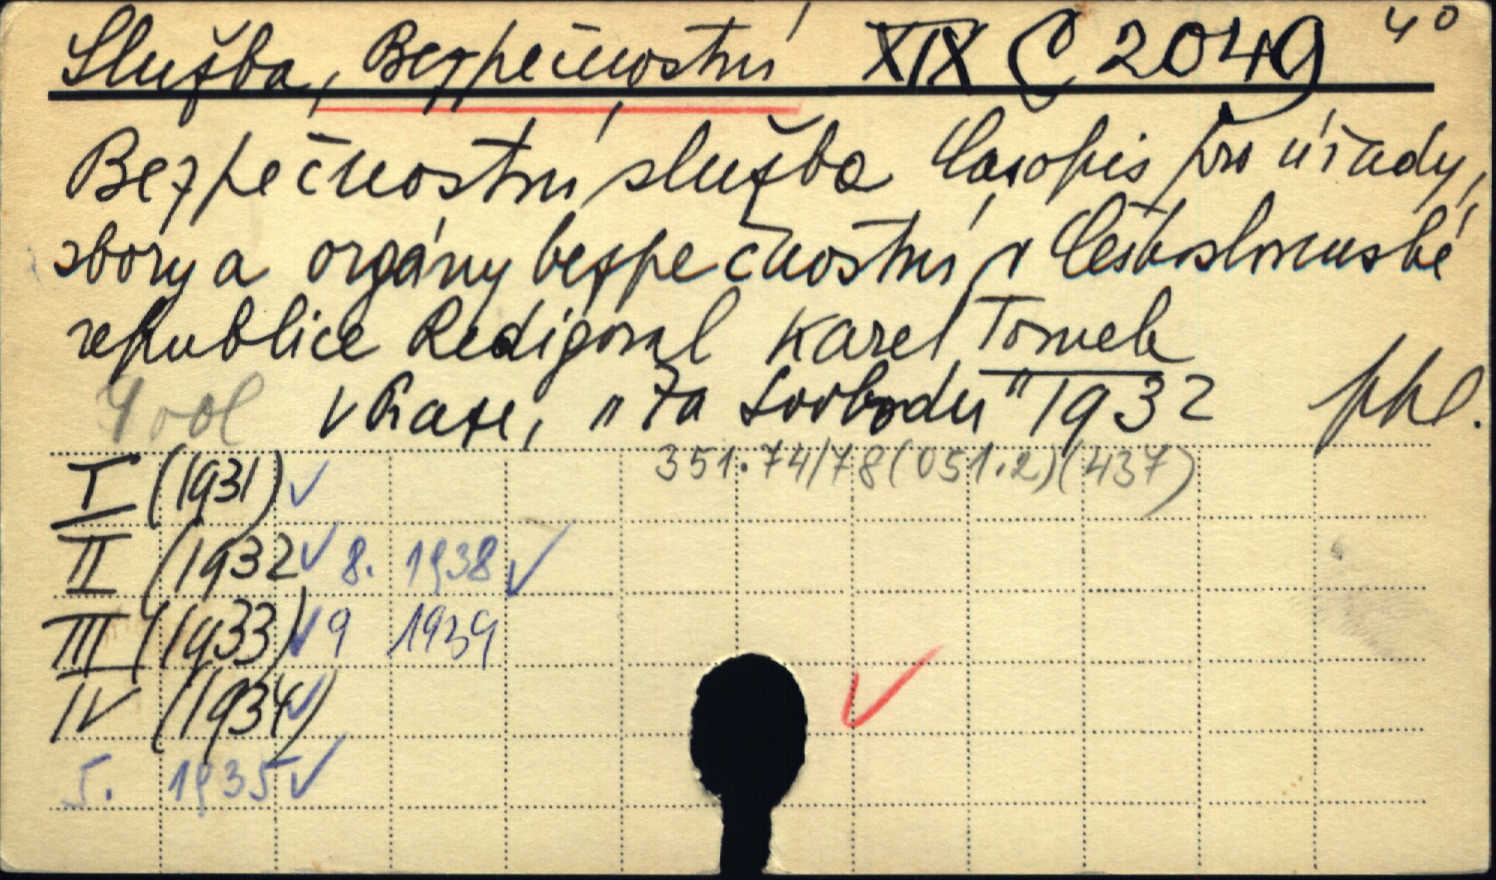 Služba, Bezpečnostní XIX C 2049 4°
Bezpečnostní služba Časopis pro úřady,
sbory a orgány bezpečnostní v Československé
republice Redigoval Karel Tomek
v Praze, "Za svobodu" 1932 ppl.
351.74/78(051.2)(437)
I (1931) ✓
II (1932 ✓ 8. 1938 ✓
III (1933) ✓ 9 1939
IV (1934) ✓
5. 1935 ✓